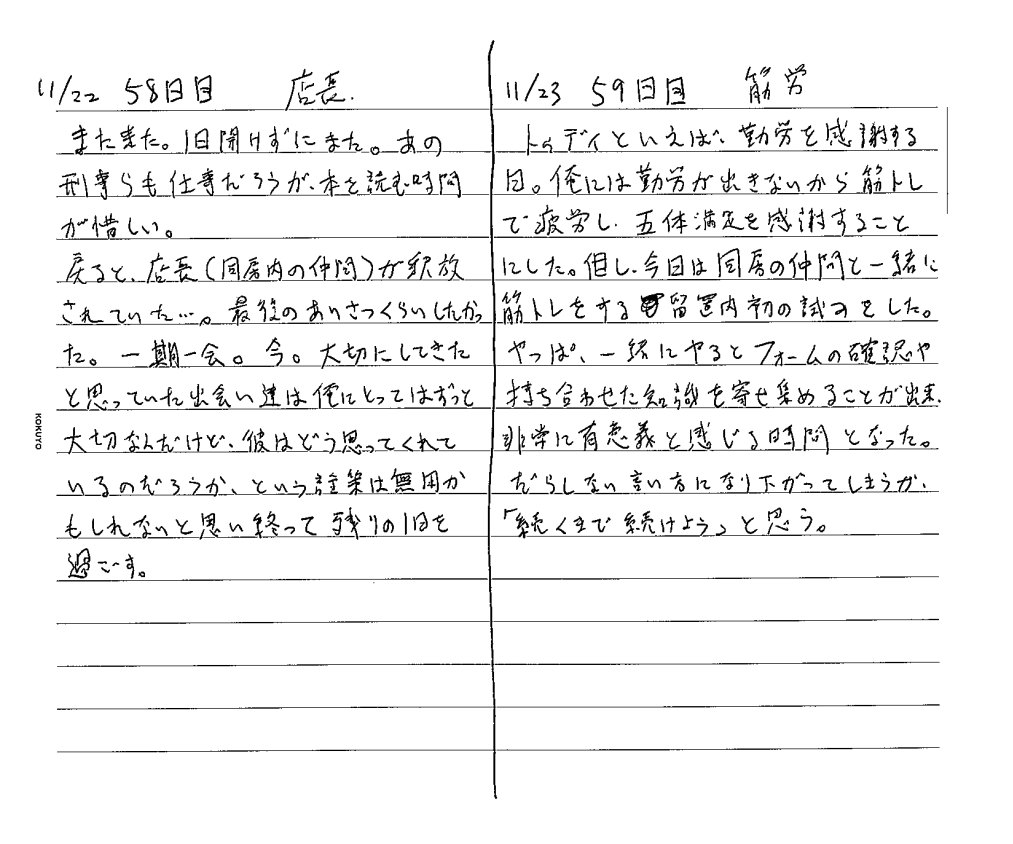 11/22 58日目 店長.
また来た。1日開けずにまた。あの
刑事らも仕事だろうが、本を読む時間
が惜しい。
戻ると、店長(同房内の仲間)が釈放
されていた…。最後のあいさつくらいしたかっ
た。一期一会。今。大切にしてきた
と思っていた出会い達は俺にとってはずっと
大切なんだけど、彼はどう思ってくれて
いるのだろうか、という詮策は無用か
もしれないと思い終って残りの1日を
過ごす。
KOKUYO
11/23 59日目 筋労
トゥデイといえば、勤労を感謝する
日。俺には勤労が出きないから筋トレ
で疲労し、五体満足を感謝すること
にした。但し、今日は同房の仲間と一緒に
筋トレをする留置内初の試みをした。
やっぱ、一緒にやるとフォームの確認や
持ち合わせた知識を寄せ集めることが出来、
非常に有意義と感じる時間となった。
だらしない言い方になり下がってしまうが、
「続くまで続けよう」と思う。